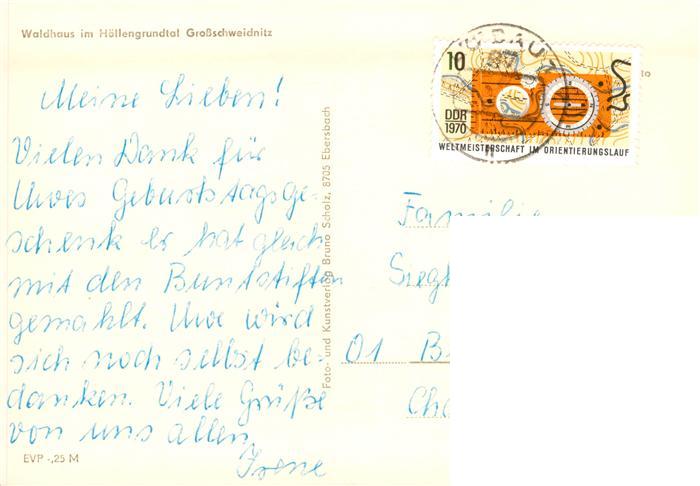 Waldhaus im Höllengrundtal Großschweidnitz
Meine Lieben!
Vielen Dank für
Uwes Geburtstagsge-
schenk er hat gleich
mit den Buntstiften
gemahlt. Uwe wird
sich noch selbst be-
danken. Viele Grüße
von uns allen
Irene
EVP -,25 M
Foto- und Kunstverlag Bruno Scholz, 8705 Ebersbach
10
DDR
1970
WELTMEISTERSCHAFT IM ORIENTIERUNGSLAUF
to
Familie
Siegl
01 B
Cha